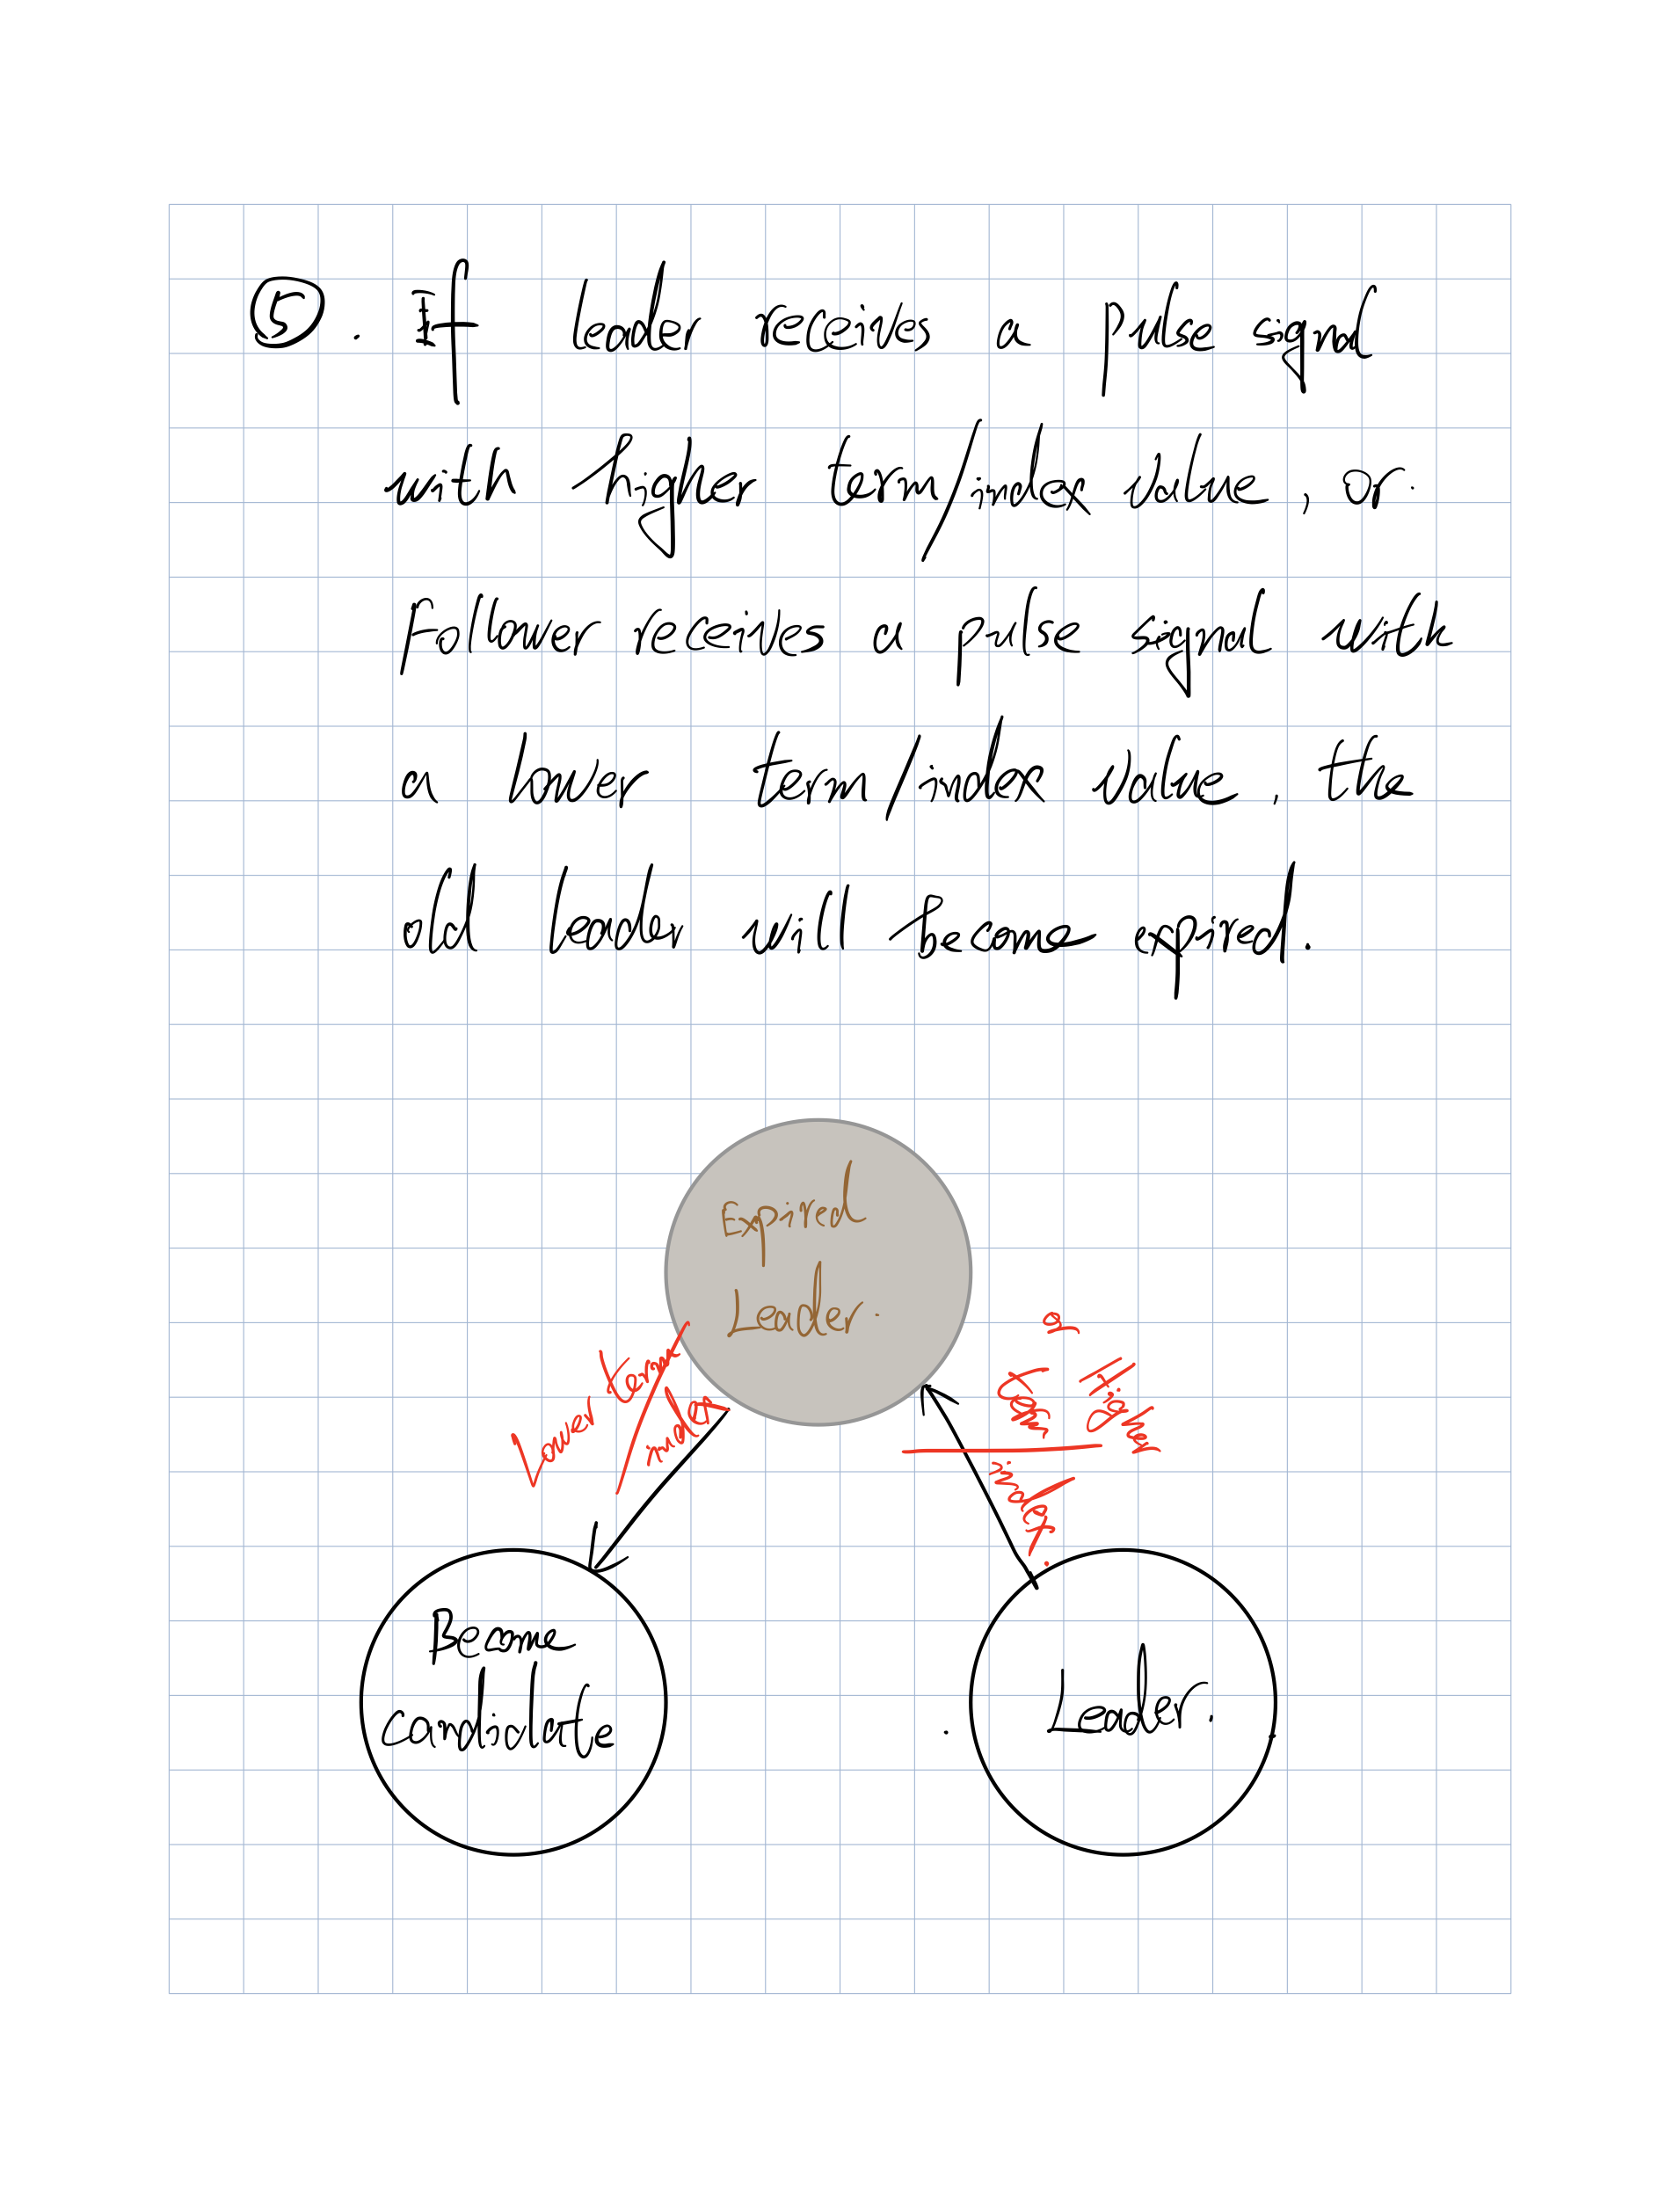 ⑤. If leader receives a pulse signal
with higher term/index value, or
follower receives a pulse signal with
a lower term/index value, the
old leader will become expired.
Expired
Leader.
Lower term/
index
or
Higher
term/
index.
Become
candidate
Leader.